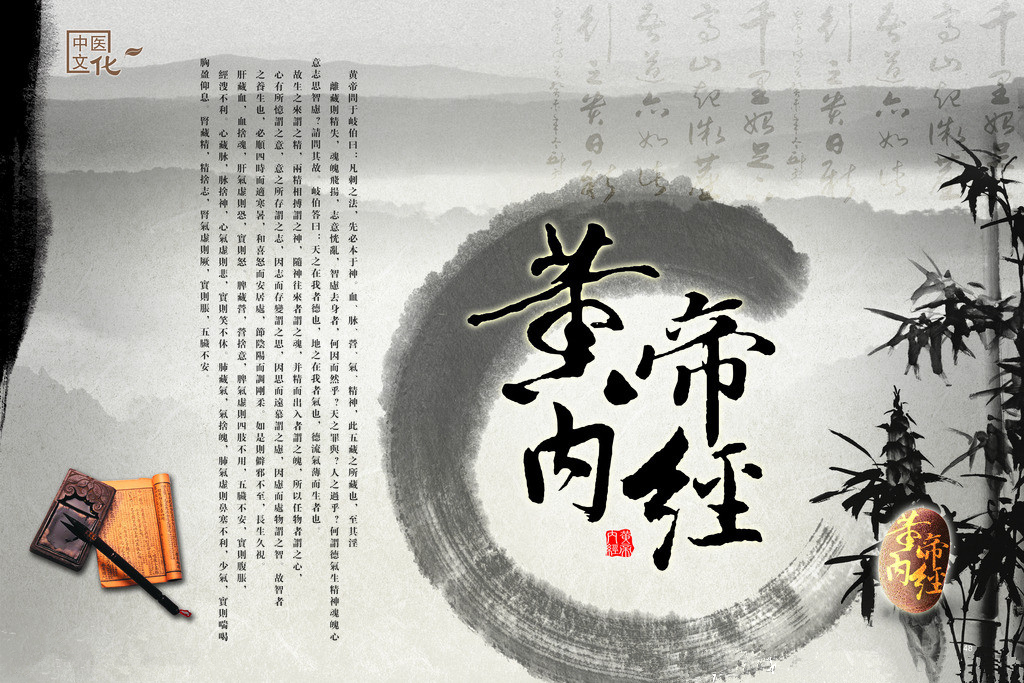 中医
文化
黄帝内經
黄帝問于岐伯曰：凡刺之法，先必本于神。血、脉、營、氣、精神，此五藏之所藏也，至其淫
離藏則精失，魂魄飛揚，志意恍亂，智慮去身者，何因而然乎？天之罪與？人之過乎？何謂德氣生精神魂魄心
意志思智慮？請問其故。岐伯答曰：天之在我者德也，地之在我者氣也，德流氣薄而生者也。
故生之來謂之精，兩精相搏謂之神，隨神往來者謂之魂，并精而出入者謂之魄，所以任物者謂之心，
心有所憶謂之意，意之所存謂之志，因志而存變謂之思，因思而遠慕謂之慮，因慮而處物謂之智。故智者
之養生也，必順四時而適寒暑，和喜怒而安居處，節陰陽而調剛柔。如是則僻邪不至，長生久視。
肝藏血，血捨魂，肝氣虛則恐，實則怒。脾藏營，營捨意，脾氣虛則四肢不用，五臟不安，實則腹脹，
經溲不利。心藏脉，脉捨神，心氣虛則悲，實則笑不休。肺藏氣，氣捨魄，肺氣虛則鼻塞不利，少氣，實則喘喝
胸盈仰息。腎藏精，精捨志，腎氣虛則厥，實則脹，五臟不安。
黄帝内經
黄帝内經